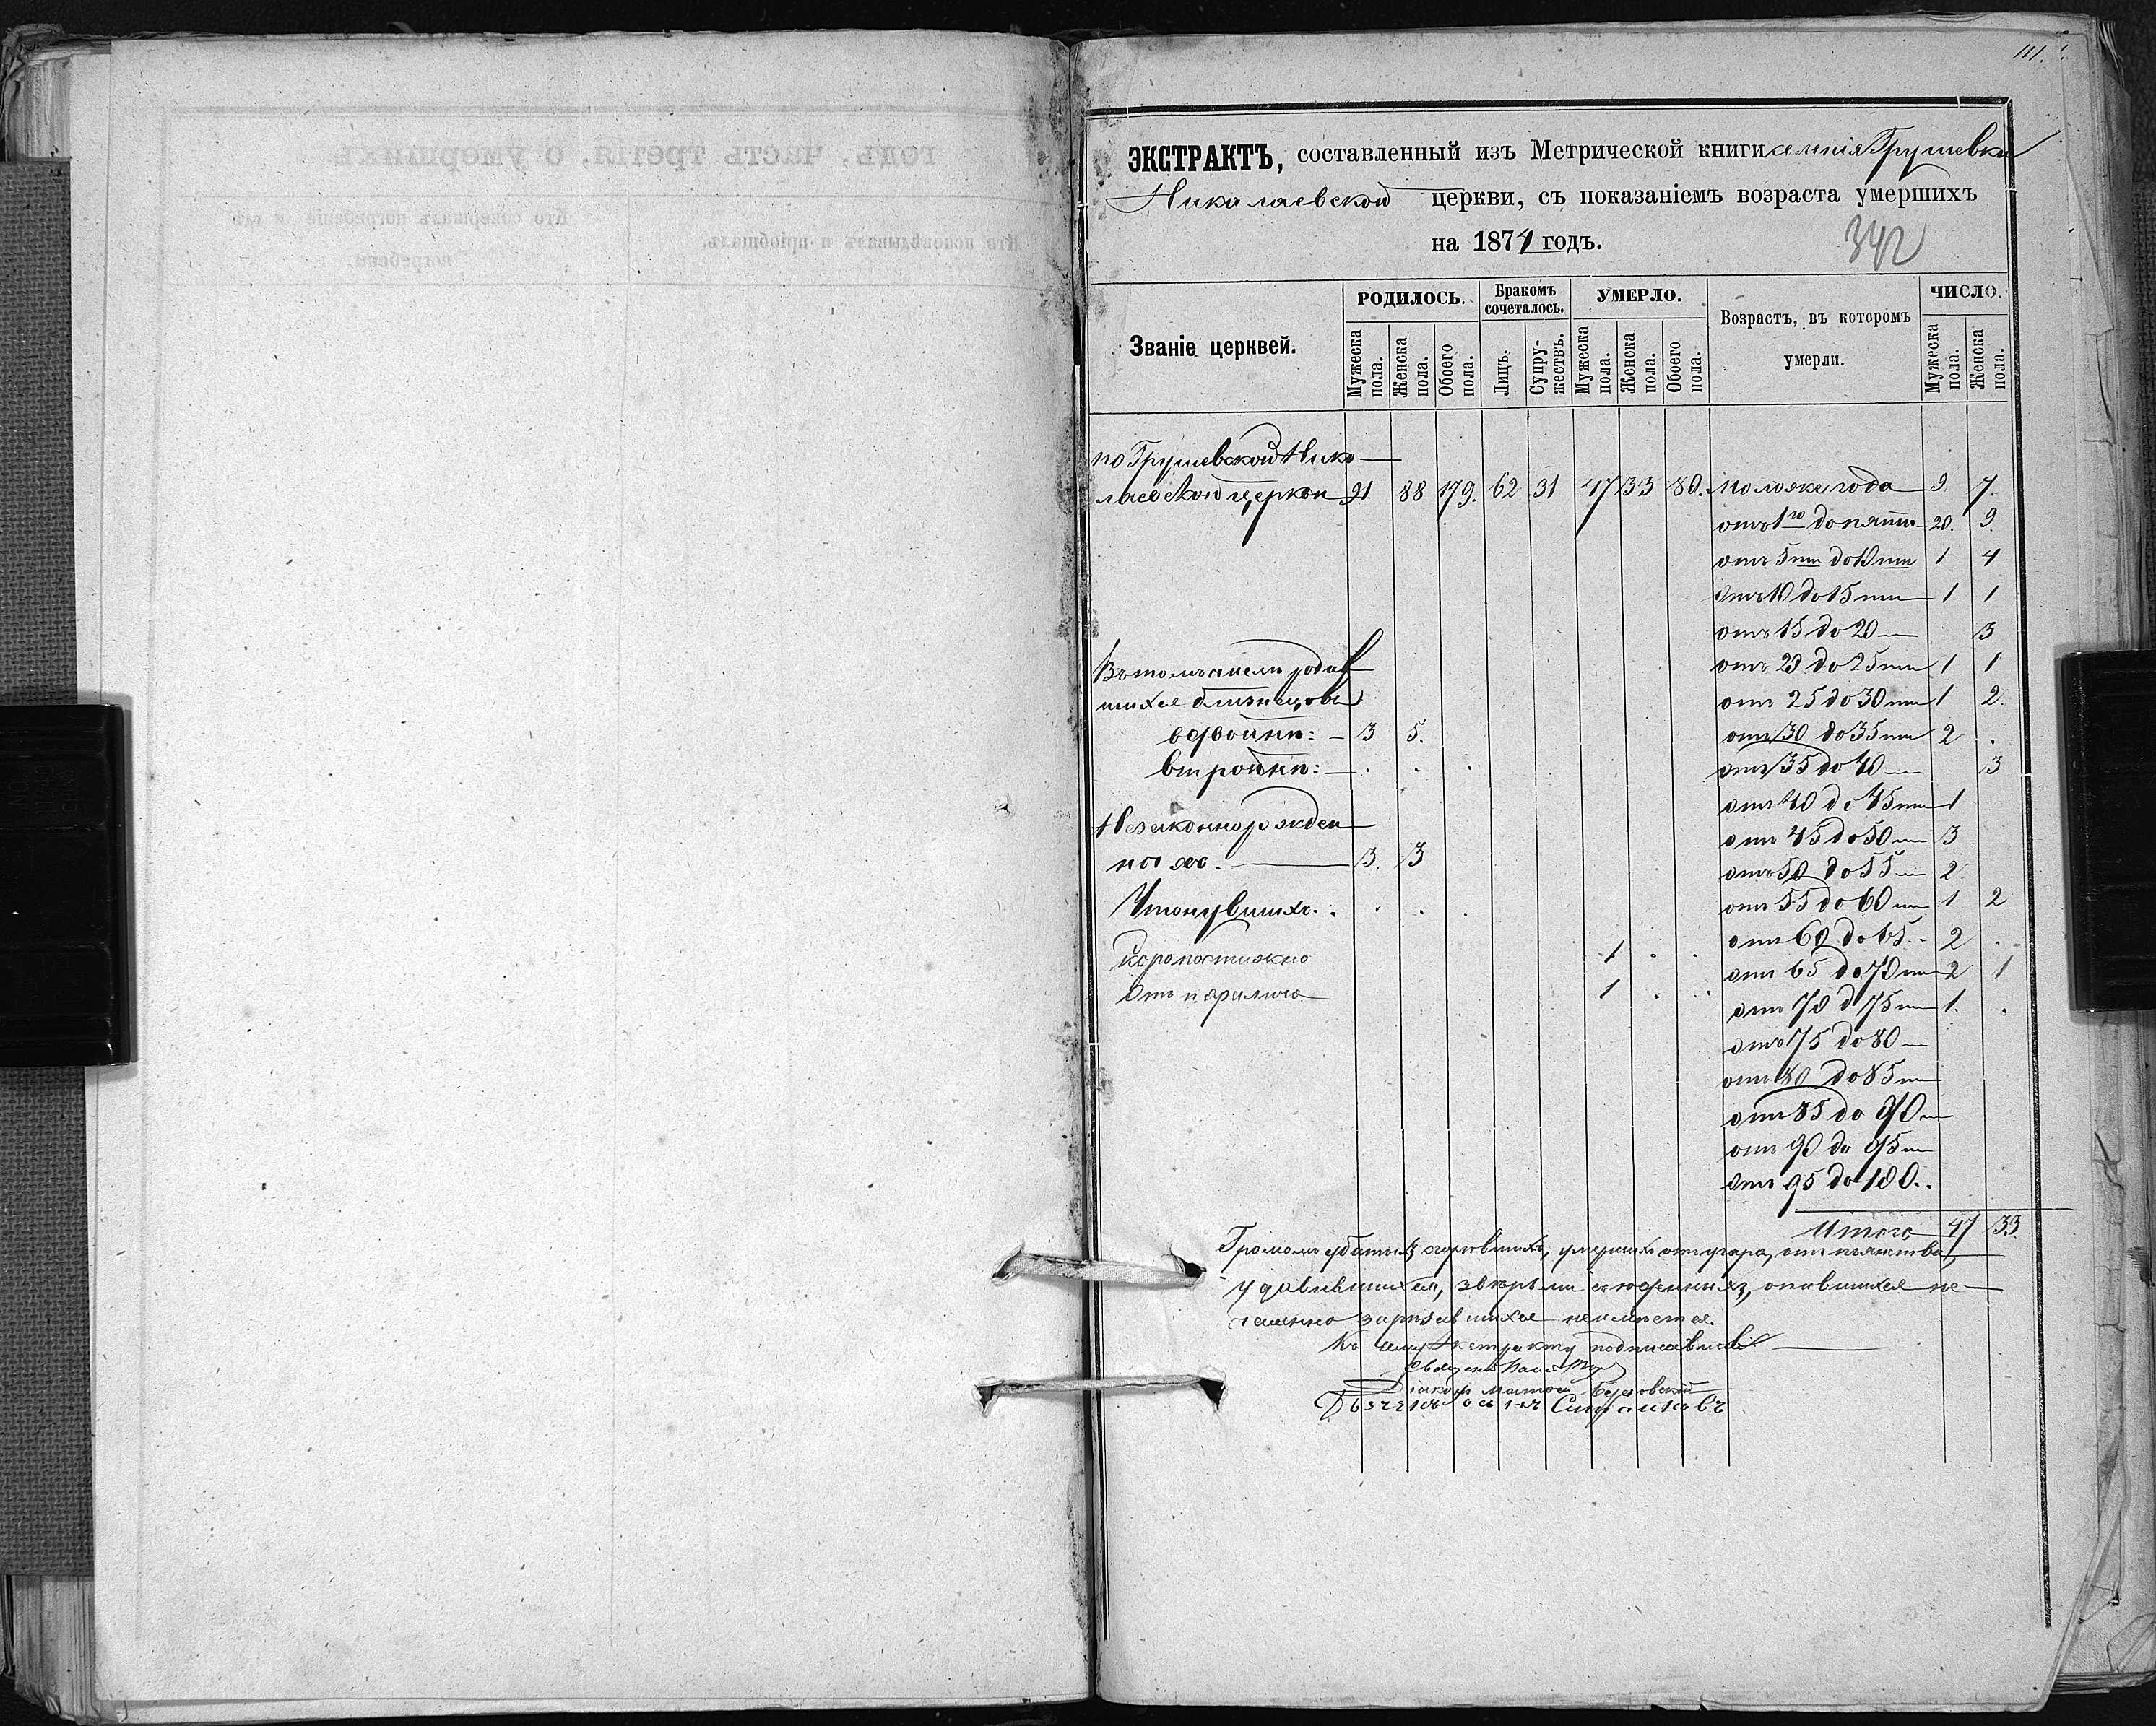 111.
ЭКСТРАКТЪ, составленный изъ Метрической книги селенія Грушевки
Николаевской церкви, съ показаніемъ возраста умершихъ
на 1874 годъ.
342
Званіе церквей.
РОДИЛОСЬ.
Бракомъ сочеталось.
УМЕРЛО.
Возрастъ, въ которомъ умерли.
ЧИСЛО.
Мужеска пола.
Женска пола.
Обоего пола.
Лицъ.
Супружествъ.
Мужеска пола.
Женска пола.
Обоего пола.
Мужеска пола.
Женска пола.
по Грушевской Нико
лаевской церкви 91 88 179. 62 31 47 33 80. Моложе года 9 7.
отъ 1го до пяти 20. 9.
отъ 5ти до 10ти 1 4
отъ 10 до 15ти 1 1
отъ 15 до 20 3
Въ томъ числѣ родив отъ 20 до 25ти 1 1
шихся близнецовъ отъ 25 до 30ти 1 2.
въ двойни: 3 5. отъ 30 до 35ти 2 .
въ тройни: . . . отъ 35 до 40 3
отъ 40 до 45ти 1
Незаконнорожден отъ 45 до 50 3
ныхъ. 3. 3 отъ 50 до 55 2
Утонувшихъ. . . . отъ 55 до 60 1 2
отъ 60 до 65 2 .
Скоропостижно 1 . . отъ 65 до 70 2 1
Отъ паралича 1 . . отъ 70 до 75 1. .
отъ 75 до 80
отъ 80 до 85
отъ 85 до 90
отъ 90 до 95
отъ 95 до 100.
Итого 47 33.
Громомъ убитыхъ, сгорѣвшихъ, умершихъ отъ угара, отъ пьянства,
удавившихся, звѣрьми съѣденныхъ, опившихся не
чаянно зарѣзавшихся неимѣется.
Къ сему Экстракту подписались
Священникъ
Діаконъ Матѳей
Дьячекъ